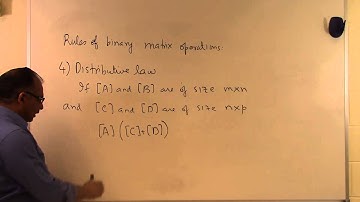 Rules of binary matrix operations:
4) Distributive law
If [A] and [B] are of size mxn
and [C] and [D] are of size nxp
[A] ([C]+[D])